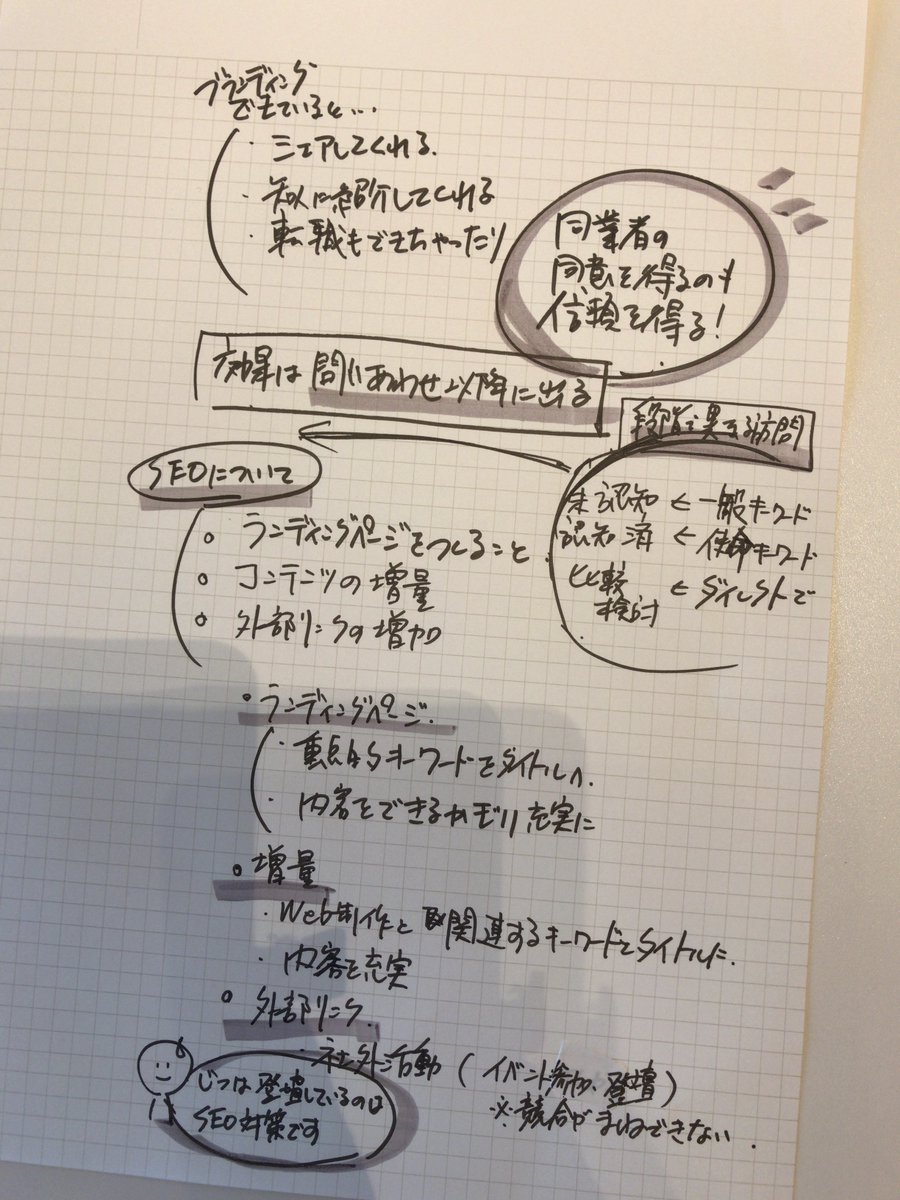 ブランディング
できていると...
・シェアしてくれる.
・知人に紹介してくれる
・転職もできちゃったり
同業者の
同意を得るのも
信頼を得る!
効果は問いあわせ以降に出る
段階で異なる訪問
未認知 ← 一般キーワード
認知済 ← 使命キーワード
比較 ← ダイレクトで
検討
SEOについて
○ ランディングページをつくること
○ コンテンツの増量
○ 外部リンクの増加
○ ランディングページ.
・重点的キーワードをタイトルへ.
・内容をできるかぎり充実に
○ 増量
・Web制作と関連するキーワードをタイトルに.
・内容を充実
○ 外部リンク.
・社外活動 (イベント参加、登壇)
※競合がまねできない.
じつは登壇しているのは
SEO対策です